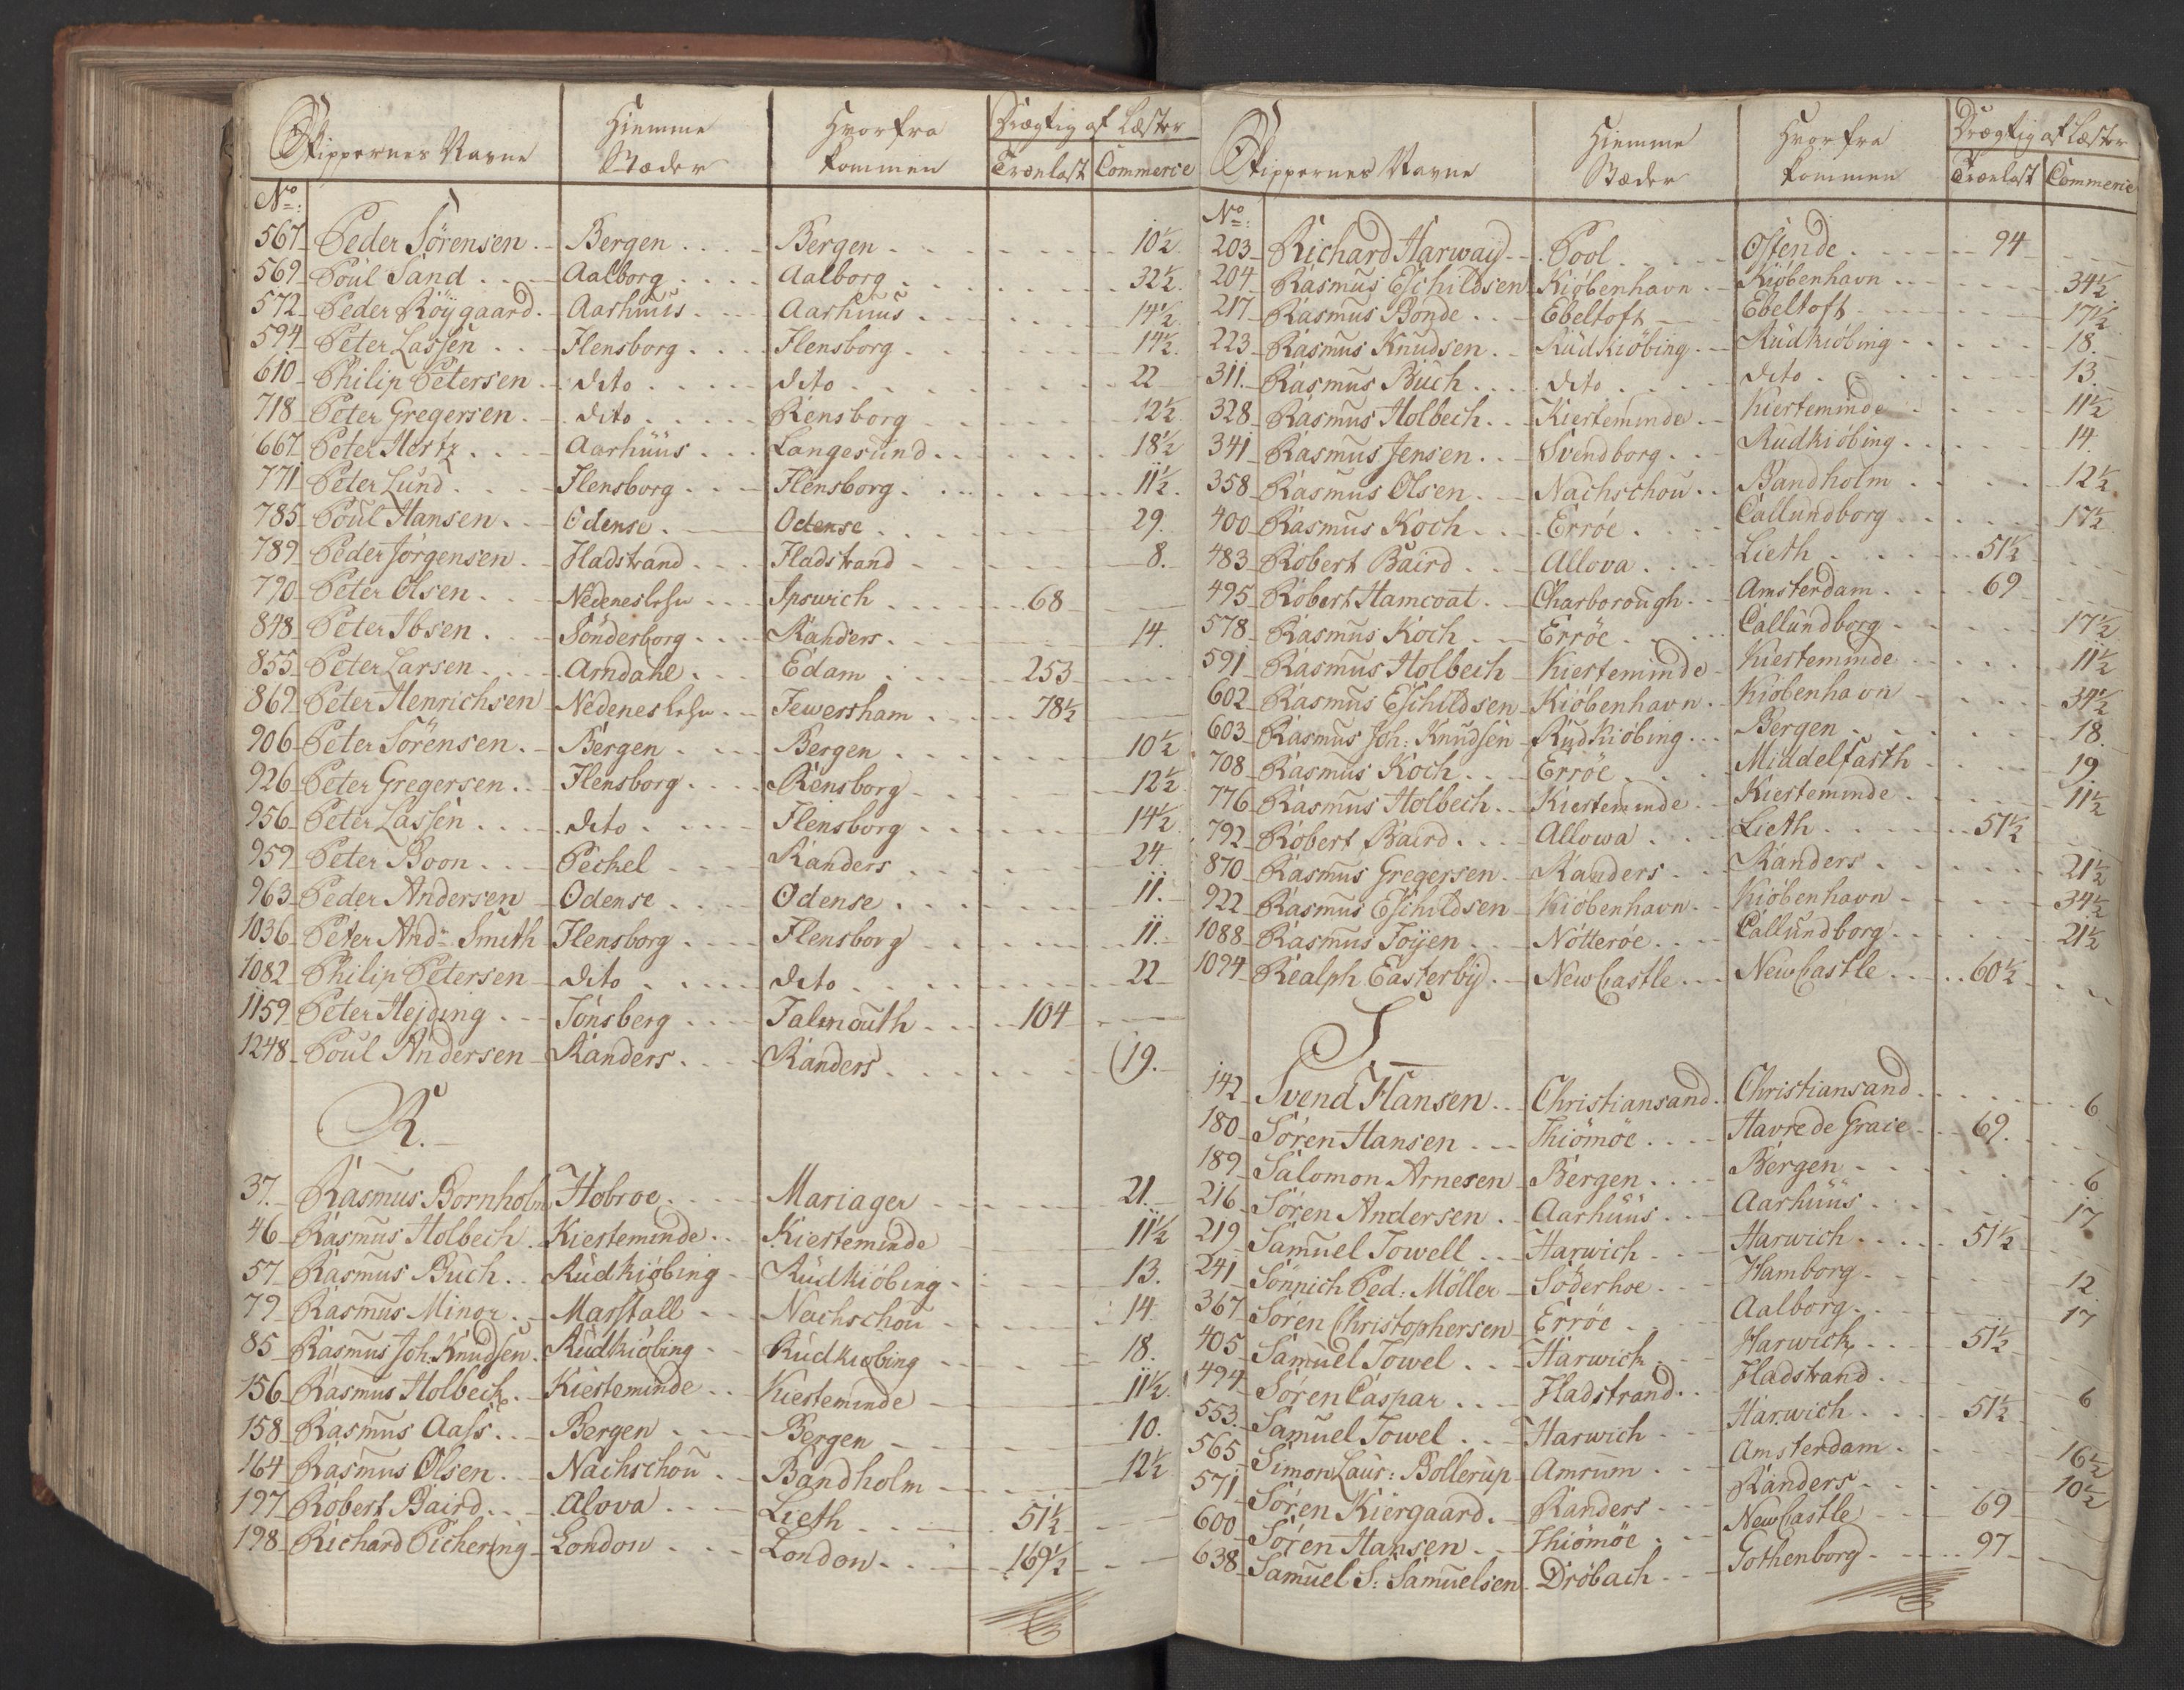 Skippernes Navne Hiemme Stæder Hvorfra kommen Drægtig af Læster
Trælast Commerce
No:
567 Peder Sörensen Bergen Bergen 10½
569 Poul Sand Aalborg Aalborg 32½
572 Peder Röygaard Aarhuus Aarhuus 14½
594 Peter Lassen Flensborg Flensborg 14½
610 Philip Petersen dito dito 22
718 Peter Gregersen dito Rensborg 12½
667 Peter Hertz Aarhuus Langesund 18½
771 Peter Lund Flensborg Flensborg 11½
785 Poul Hansen Odense Odense 29.
789 Peder Jörgensen Fladstrand Fladstrand 8.
790 Peter Olsen Nedenes Lehn Ipswich 68
848 Peter Ibsen Sönderborg Randers 14.
855 Peter Larsen Arndahl Edam 253
869 Peter Henrichsen Nedenes Lehn Fewersham 78½
906 Peter Sörensen Bergen Bergen 10½
926 Peter Gregersen Flensborg Rensborg 12½
956 Peter Lassen dito Flensborg 14½
959 Peter Boon Peckel Randers 24.
963 Peder Andersen Odense Odense 11.
1036 Peter Andr Smith Flensborg Flensborg 11.
1082 Philip Petersen dito dito 22
1159 Peter Hejding Tönsberg Falmouth 104
1248 Poul Andersen Randers Randers 19.
R.
37. Rasmus Bornholm Hobroe Mariager 21.
46 Rasmus Holbech Kierteminde Kierteminde 11½
57 Rasmus Buch Rudkiöbing Rudkiöbing 13.
79 Rasmus Minor Marstall Nachschou 14.
85 Rasmus Joh: Knudsen Rudkiöbing Rudkiöbing 18.
156 Rasmus Holbech Kierteminde Kierteminde 11½
158 Rasmus Aass Bergen Bergen 10.
164 Rasmus Olsen Nachschou Bandholm 12½
197 Robert Baird Alova Lieth 51½
198 Richard Pichering London London 169½
Skippernes Navne Hiemme Stæder Hvorfra kommen Drægtig af Læster
Trælast Commerie
No:
203 Richard Harway Pool Ostende 94
204 Rasmus Eschildsen Kiöbenhavn Kiöbenhavn 34½
217 Rasmus Bonde Ebeltoft Ebeltoft 17½
223 Rasmus Knudsen Rudkiöbing Rudkiöbing 18.
311. Rasmus Buch dito dito 13.
328 Rasmus Holbech Kierteminde Kierteminde 11½
341 Rasmus Jensen Svendborg Rudkiöbing 14.
358 Rasmus Olsen Nachschou Bandholm 12½
400 Rasmus Koch Erröe Callundborg 17½
483 Robert Baird Allova Lieth 51½
495 Robert Hamcoat Charborough Amsterdam 69
578 Rasmus Koch Erröe Callundborg 17½
591 Rasmus Holbech Kierteminde Kierteminde 11½
602 Rasmus Eschildsen Kiöbenhavn Kiöbenhavn 34½
603 Rasmus Joh: Knudsen Rudkiöbing Bergen 18.
708 Rasmus Koch Erröe Middelfarth 19.
776 Rasmus Holbech Kierteminde Kierteminde 11½
792 Robert Baird Allowa Lieth 51½
870 Rasmus Gregersen Randers Randers 21½
922 Rasmus Eschildsen Kiöbenhavn Kiöbenhavn 34½
1088 Rasmus Foyen Nötteröe Callundborg 21½
1094 Realph Easterby New Castle New Castle 60½
S
142 Svend Hansen Christiansand Christiansand 6
180 Sören Hansen Thiömöe Havre de Grace 69.
189 Salomon Arnesen Bergen Bergen 6
216 Sören Andersen Aarhuus Aarhuus 17
219 Samuel Towell Harwich Harwich 51½
241 Sönnich Ped: Möller Söderhoe Hamborg 12
367 Sören Christophersen Erröe Aalborg 17
405 Samuel Towel Harwich Harwich 51½
494 Sören Caspar Fladstrand Fladstrand 6
553. Samuel Towel Harwich Harwich 51½
565 Simon Laur: Bollerup Amrum Amsterdam 16½
571 Sören Kiergaard Randers Randers 10½
600 Sören Hansen Thiömöe New Castle 69
638 Samuel S: Samuelsen Dröbach Gothenborg 97